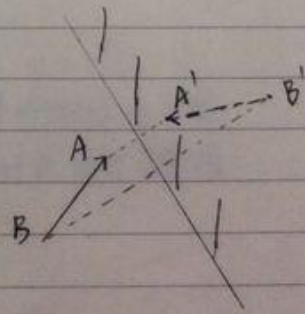 A'
B'
A
B